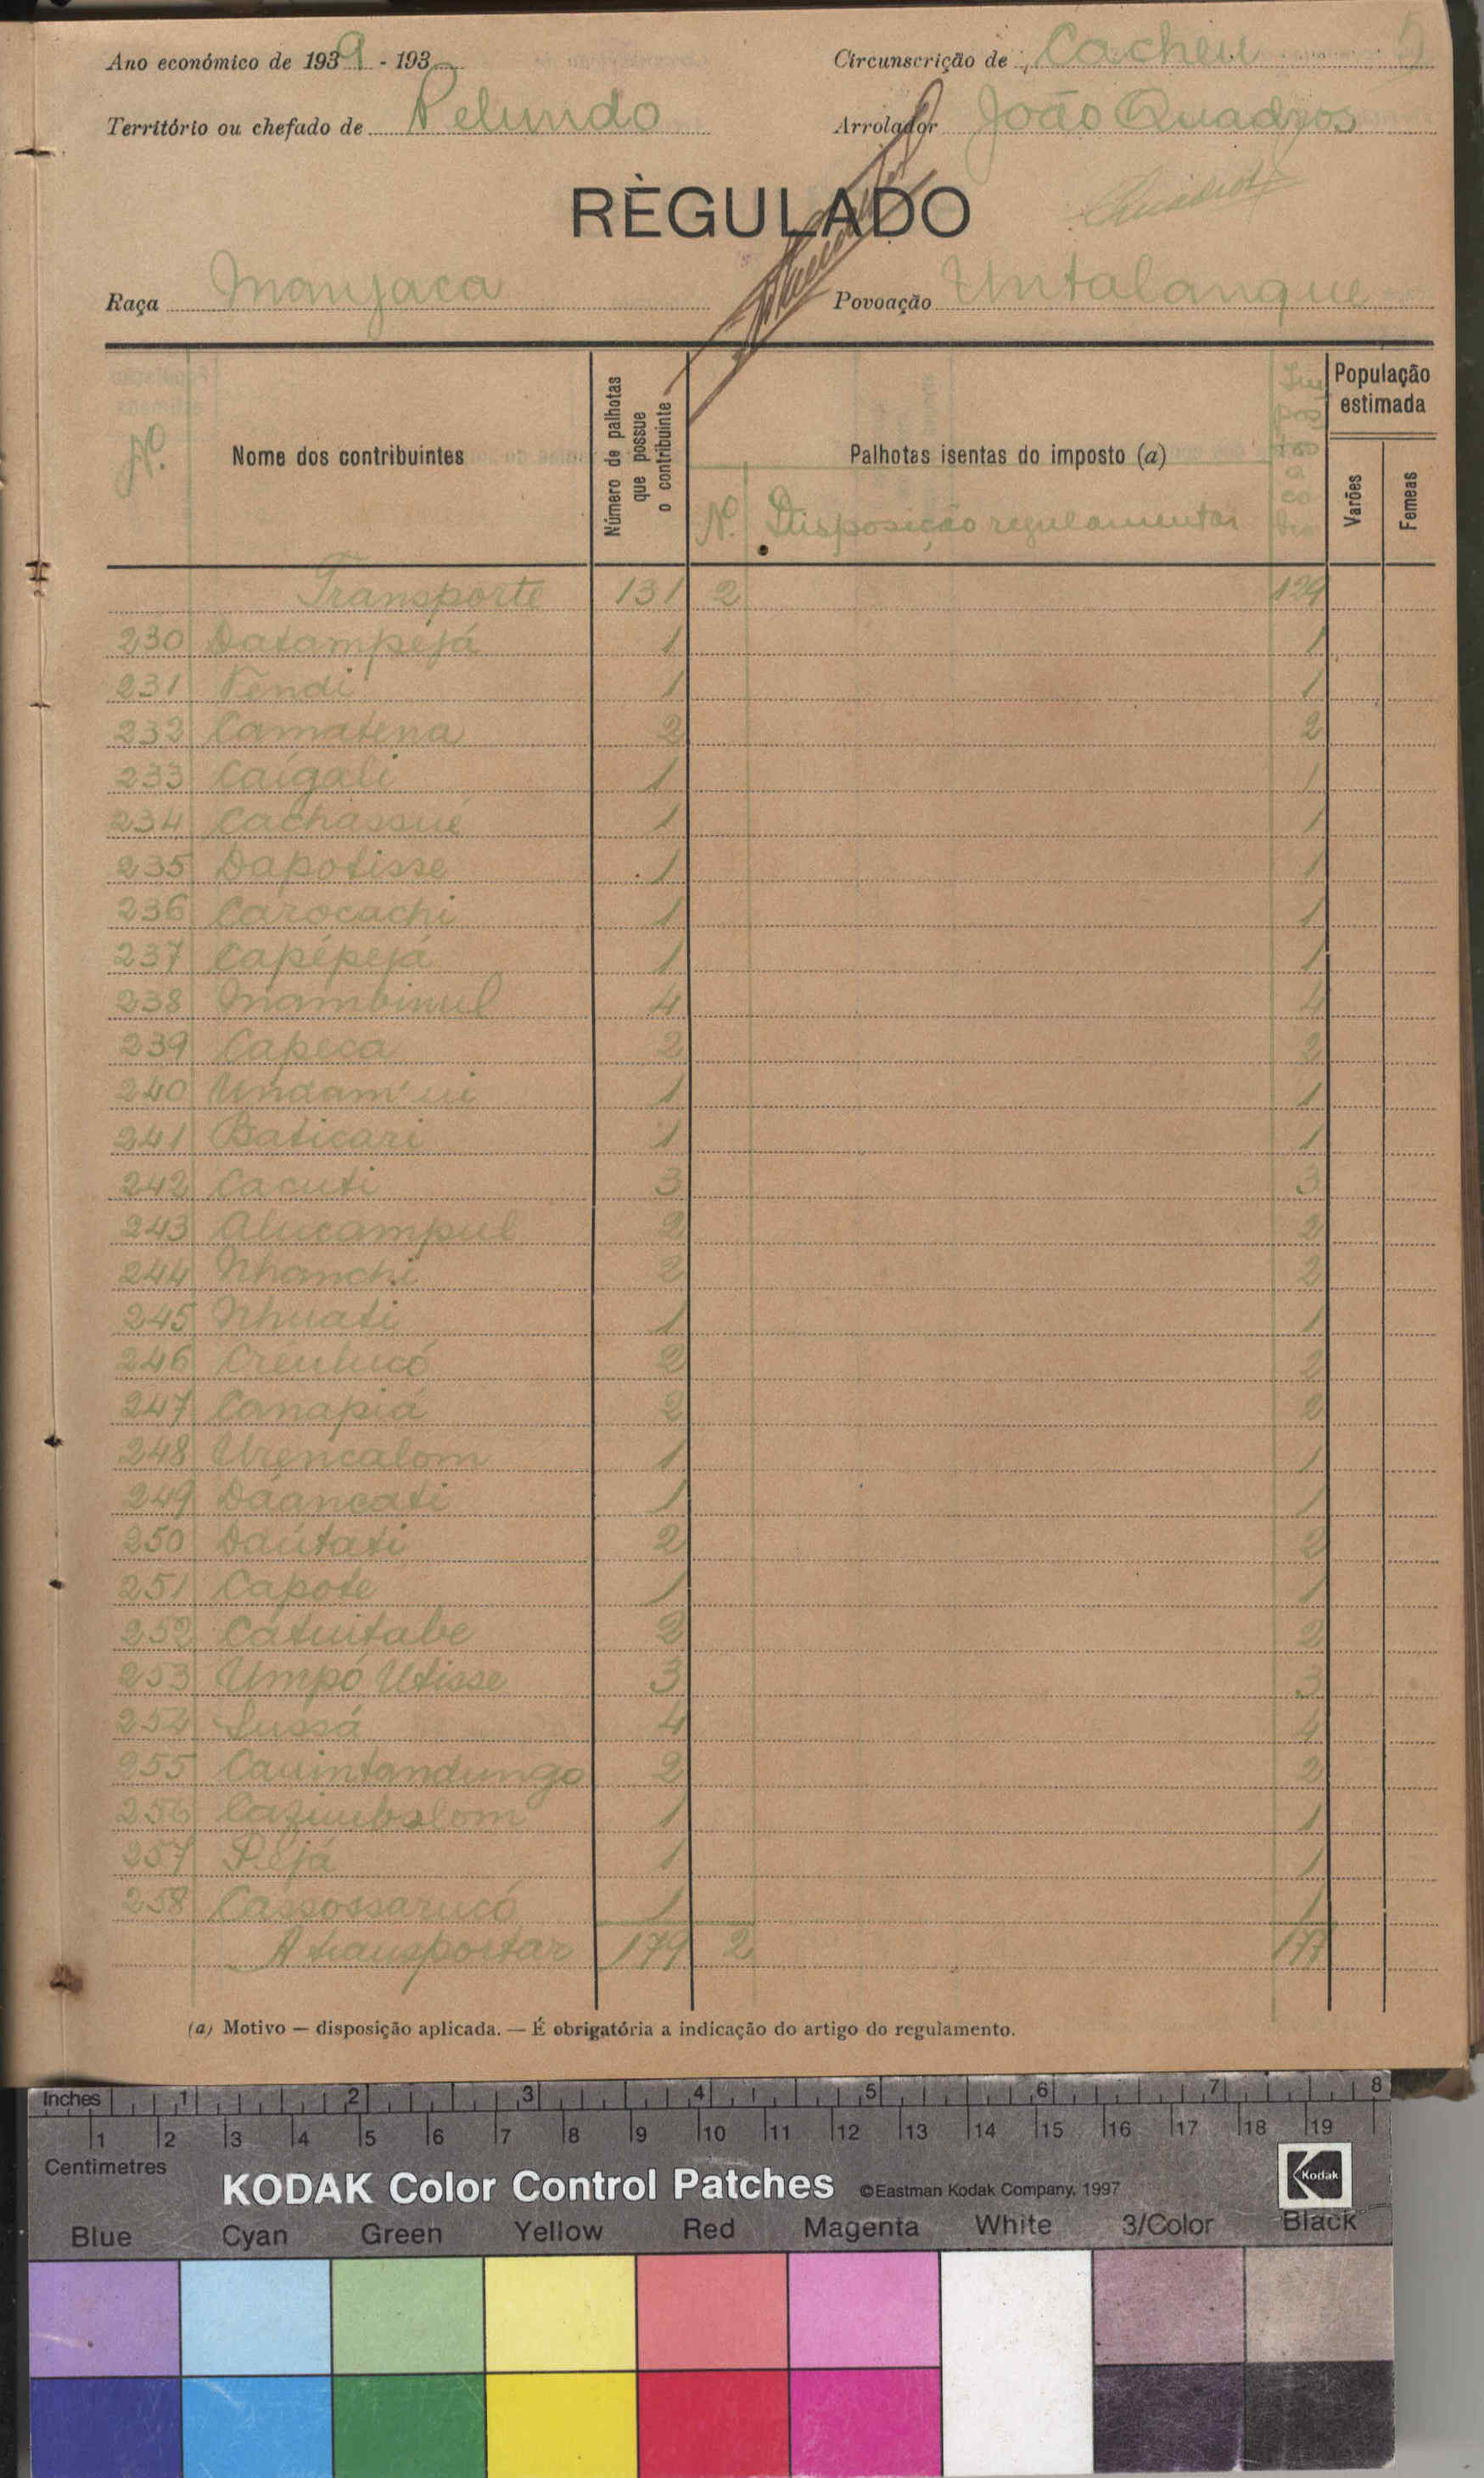 Ano económico de 1939 - 193
Circunscrição de Cacheu 5
Território ou chefado de Pelundo
Arrolador João Quadros
RÈGULADO
Quadros
Raça Manjaca
Povoação Untalangue
Nº. Nome dos contribuintes
Número de palhotas que possue o contribuinte
Palhotas isentas do imposto (a)
Nº. Disposição regulamentar
População estimada
Varões
Femeas
Transporte 131 2 129
230 Datampejá 1 1
231 Fendi 1 1
232 Camatena 2 2
233 Caígali 1 1
234 Cachassué 1 1
235 Dapotisse 1 1
236 Carocachi 1 1
237 Capépejá 1 1
238 Mambinul 4 4
239 Capeca 2 2
240 Undam'ui 1 1
241 Baticari 1 1
242 Cacuti 3 3
243 Alucampul 2 2
244 Nhanchi 2 2
245 Nhuati 1 1
246 Creulucó 2 2
247 Canapiá 2 2
248 Urencalom 1 1
249 Daancati 1 1
250 Daútati 2 2
251 Capote 1 1
252 Catuitabe 2 2
253 Umpó Utisse 3 3
254 Sussá 4 4
255 Cauintandungo 2 2
256 1 1
257 Pejá 1 1
258 Cassossarucó 1 1
A transportar 179 2 177
(a) Motivo — disposição aplicada. — É obrigatória a indicação do artigo do regulamento.
Inches 1 2 3 4 5 6 7 8
1 2 3 4 5 6 7 8 9 10 11 12 13 14 15 16 17 18 19
Centimetres
KODAK Color Control Patches ©Eastman Kodak Company, 1997 Kodak
Blue Cyan Green Yellow Red Magenta White 3/Color Black